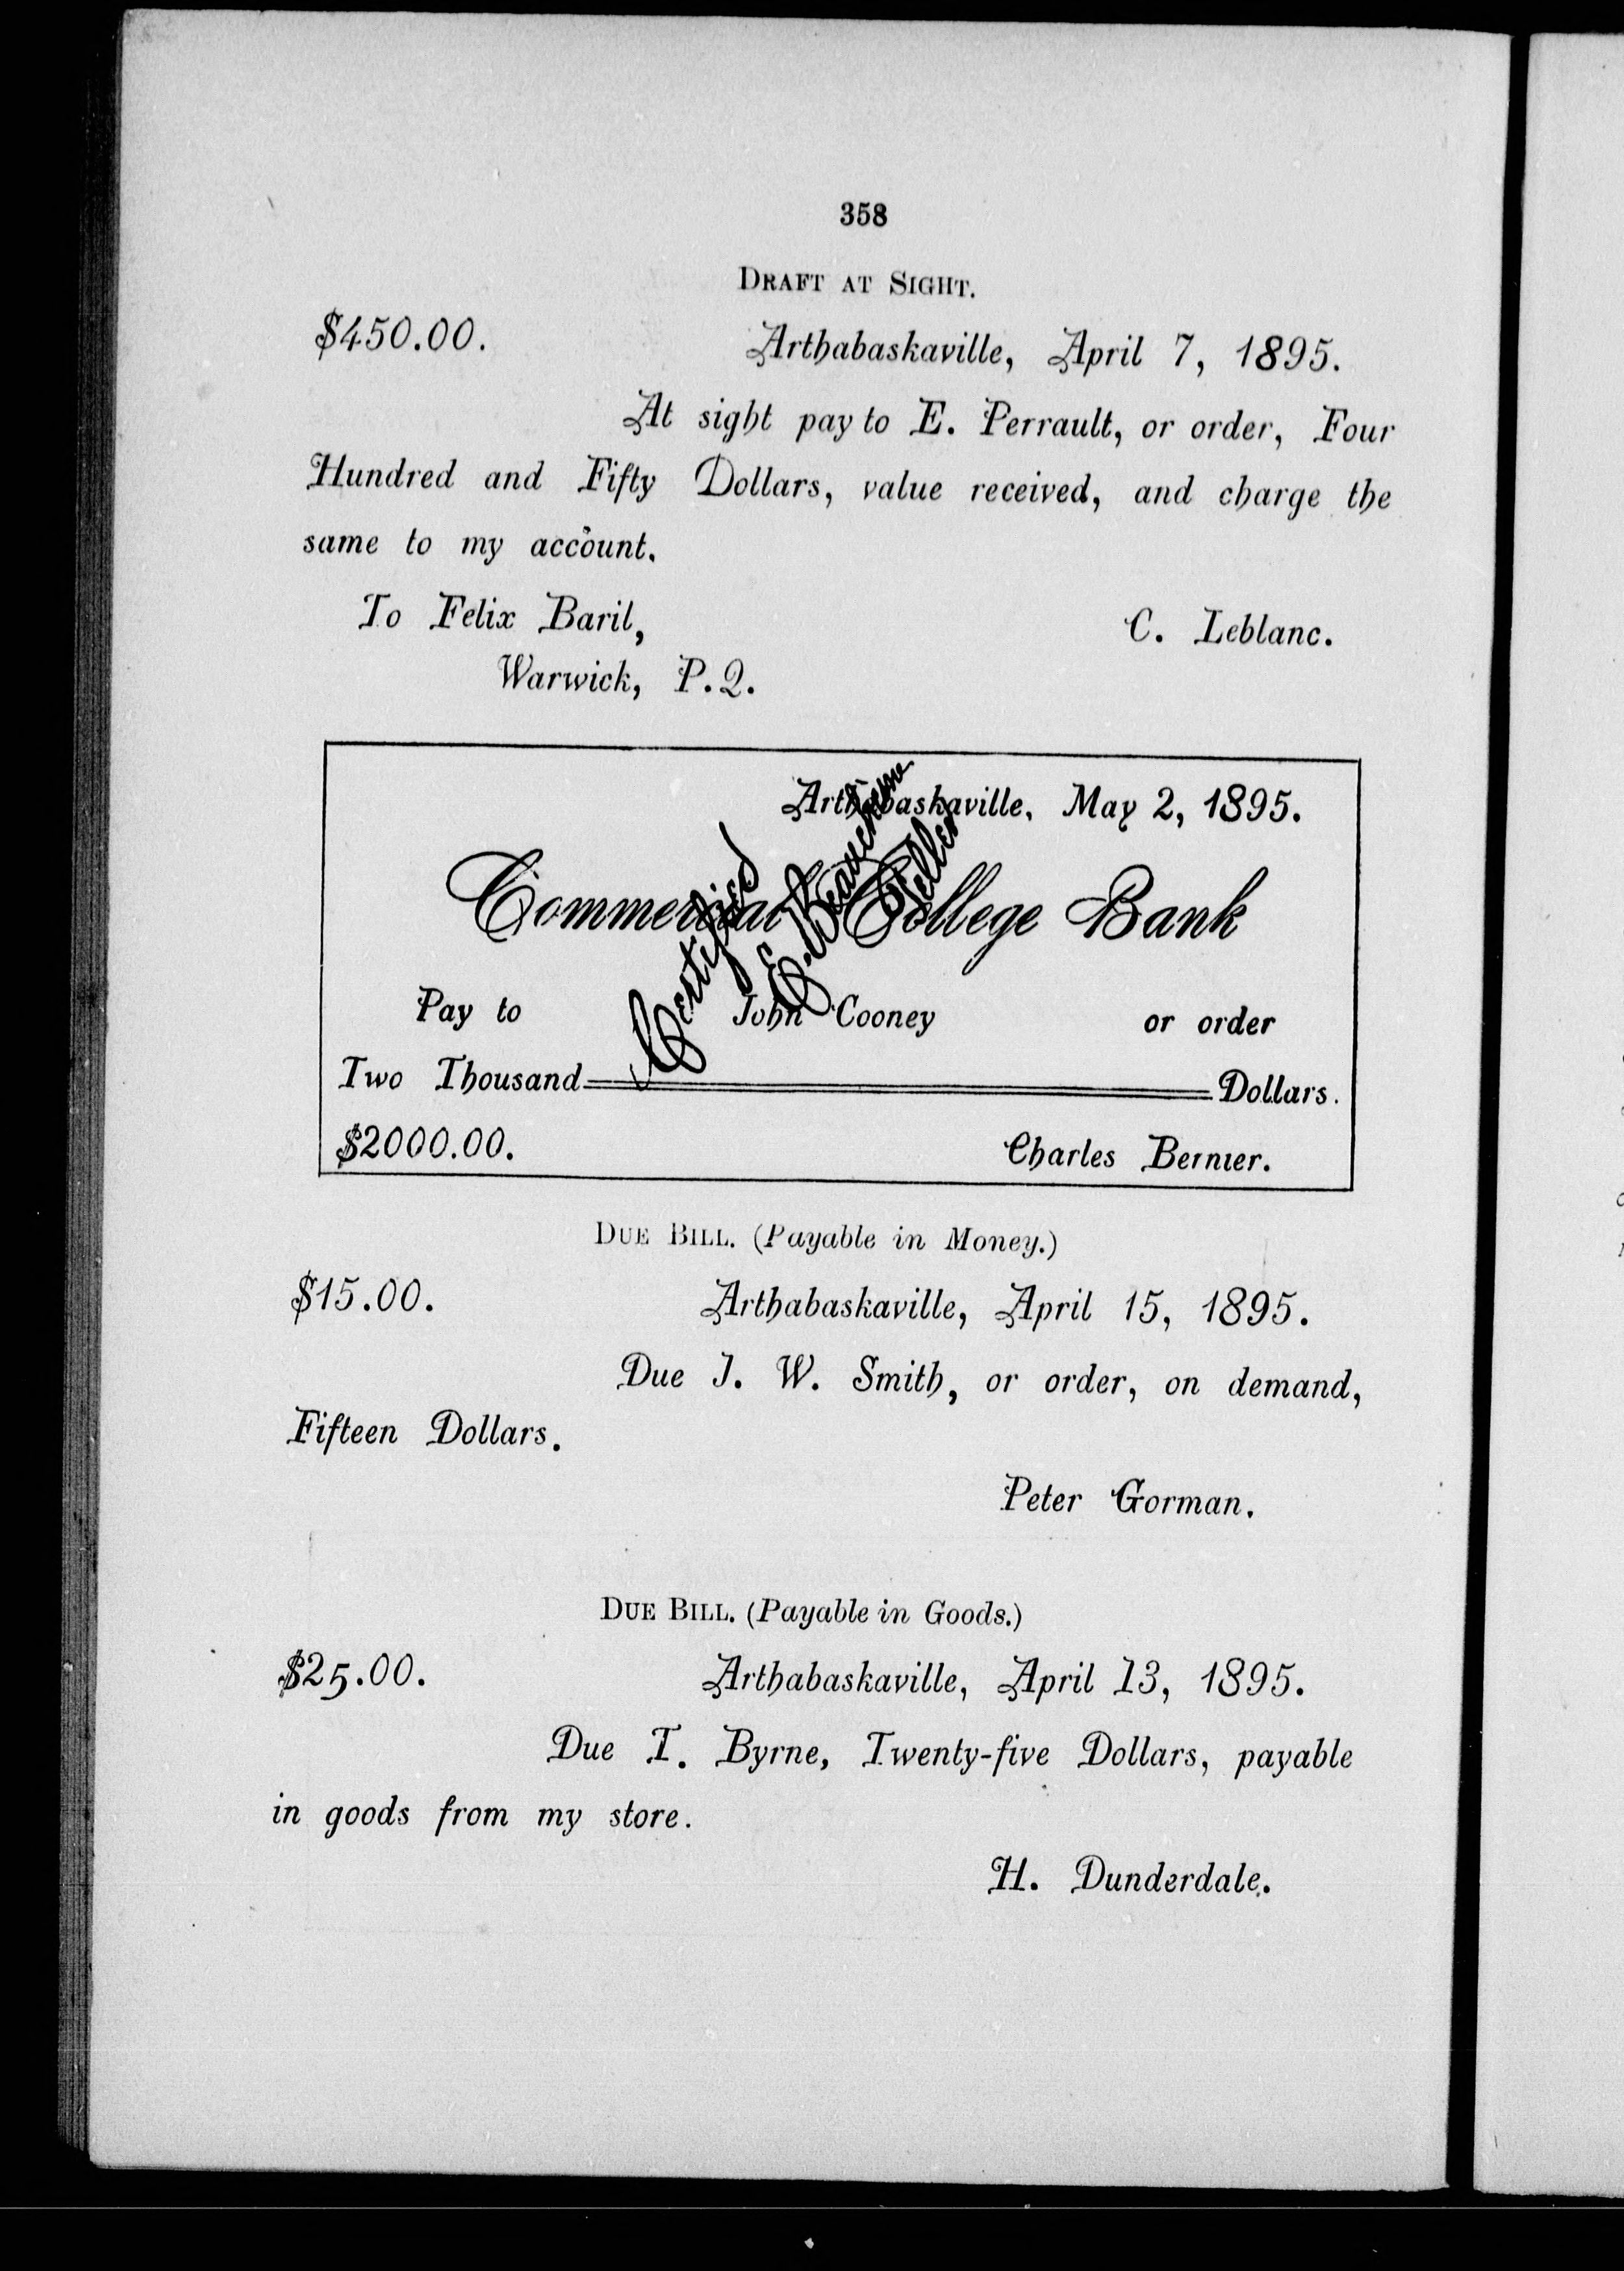 358
DRAFT AT SIGHT.
$450.00. Arthabaskaville, April 7, 1895.
At sight pay to E. Perrault, or order, Four
Hundred and Fifty Dollars, value received, and charge the
same to my account.
To Felix Baril, C. Leblanc.
Warwick, P.Q.
Arthabaskaville, May 2, 1895.
Commercial College Bank
Certified
Teller
Pay to John Cooney or order
Two Thousand Dollars.
$2000.00. Charles Bernier.
DUE BILL. (Payable in Money.)
$15.00. Arthabaskaville, April 15, 1895.
Due J. W. Smith, or order, on demand,
Fifteen Dollars.
Peter Gorman.
DUE BILL. (Payable in Goods.)
$25.00. Arthabaskaville, April 13, 1895.
Due T. Byrne, Twenty-five Dollars, payable
in goods from my store.
H. Dunderdale.